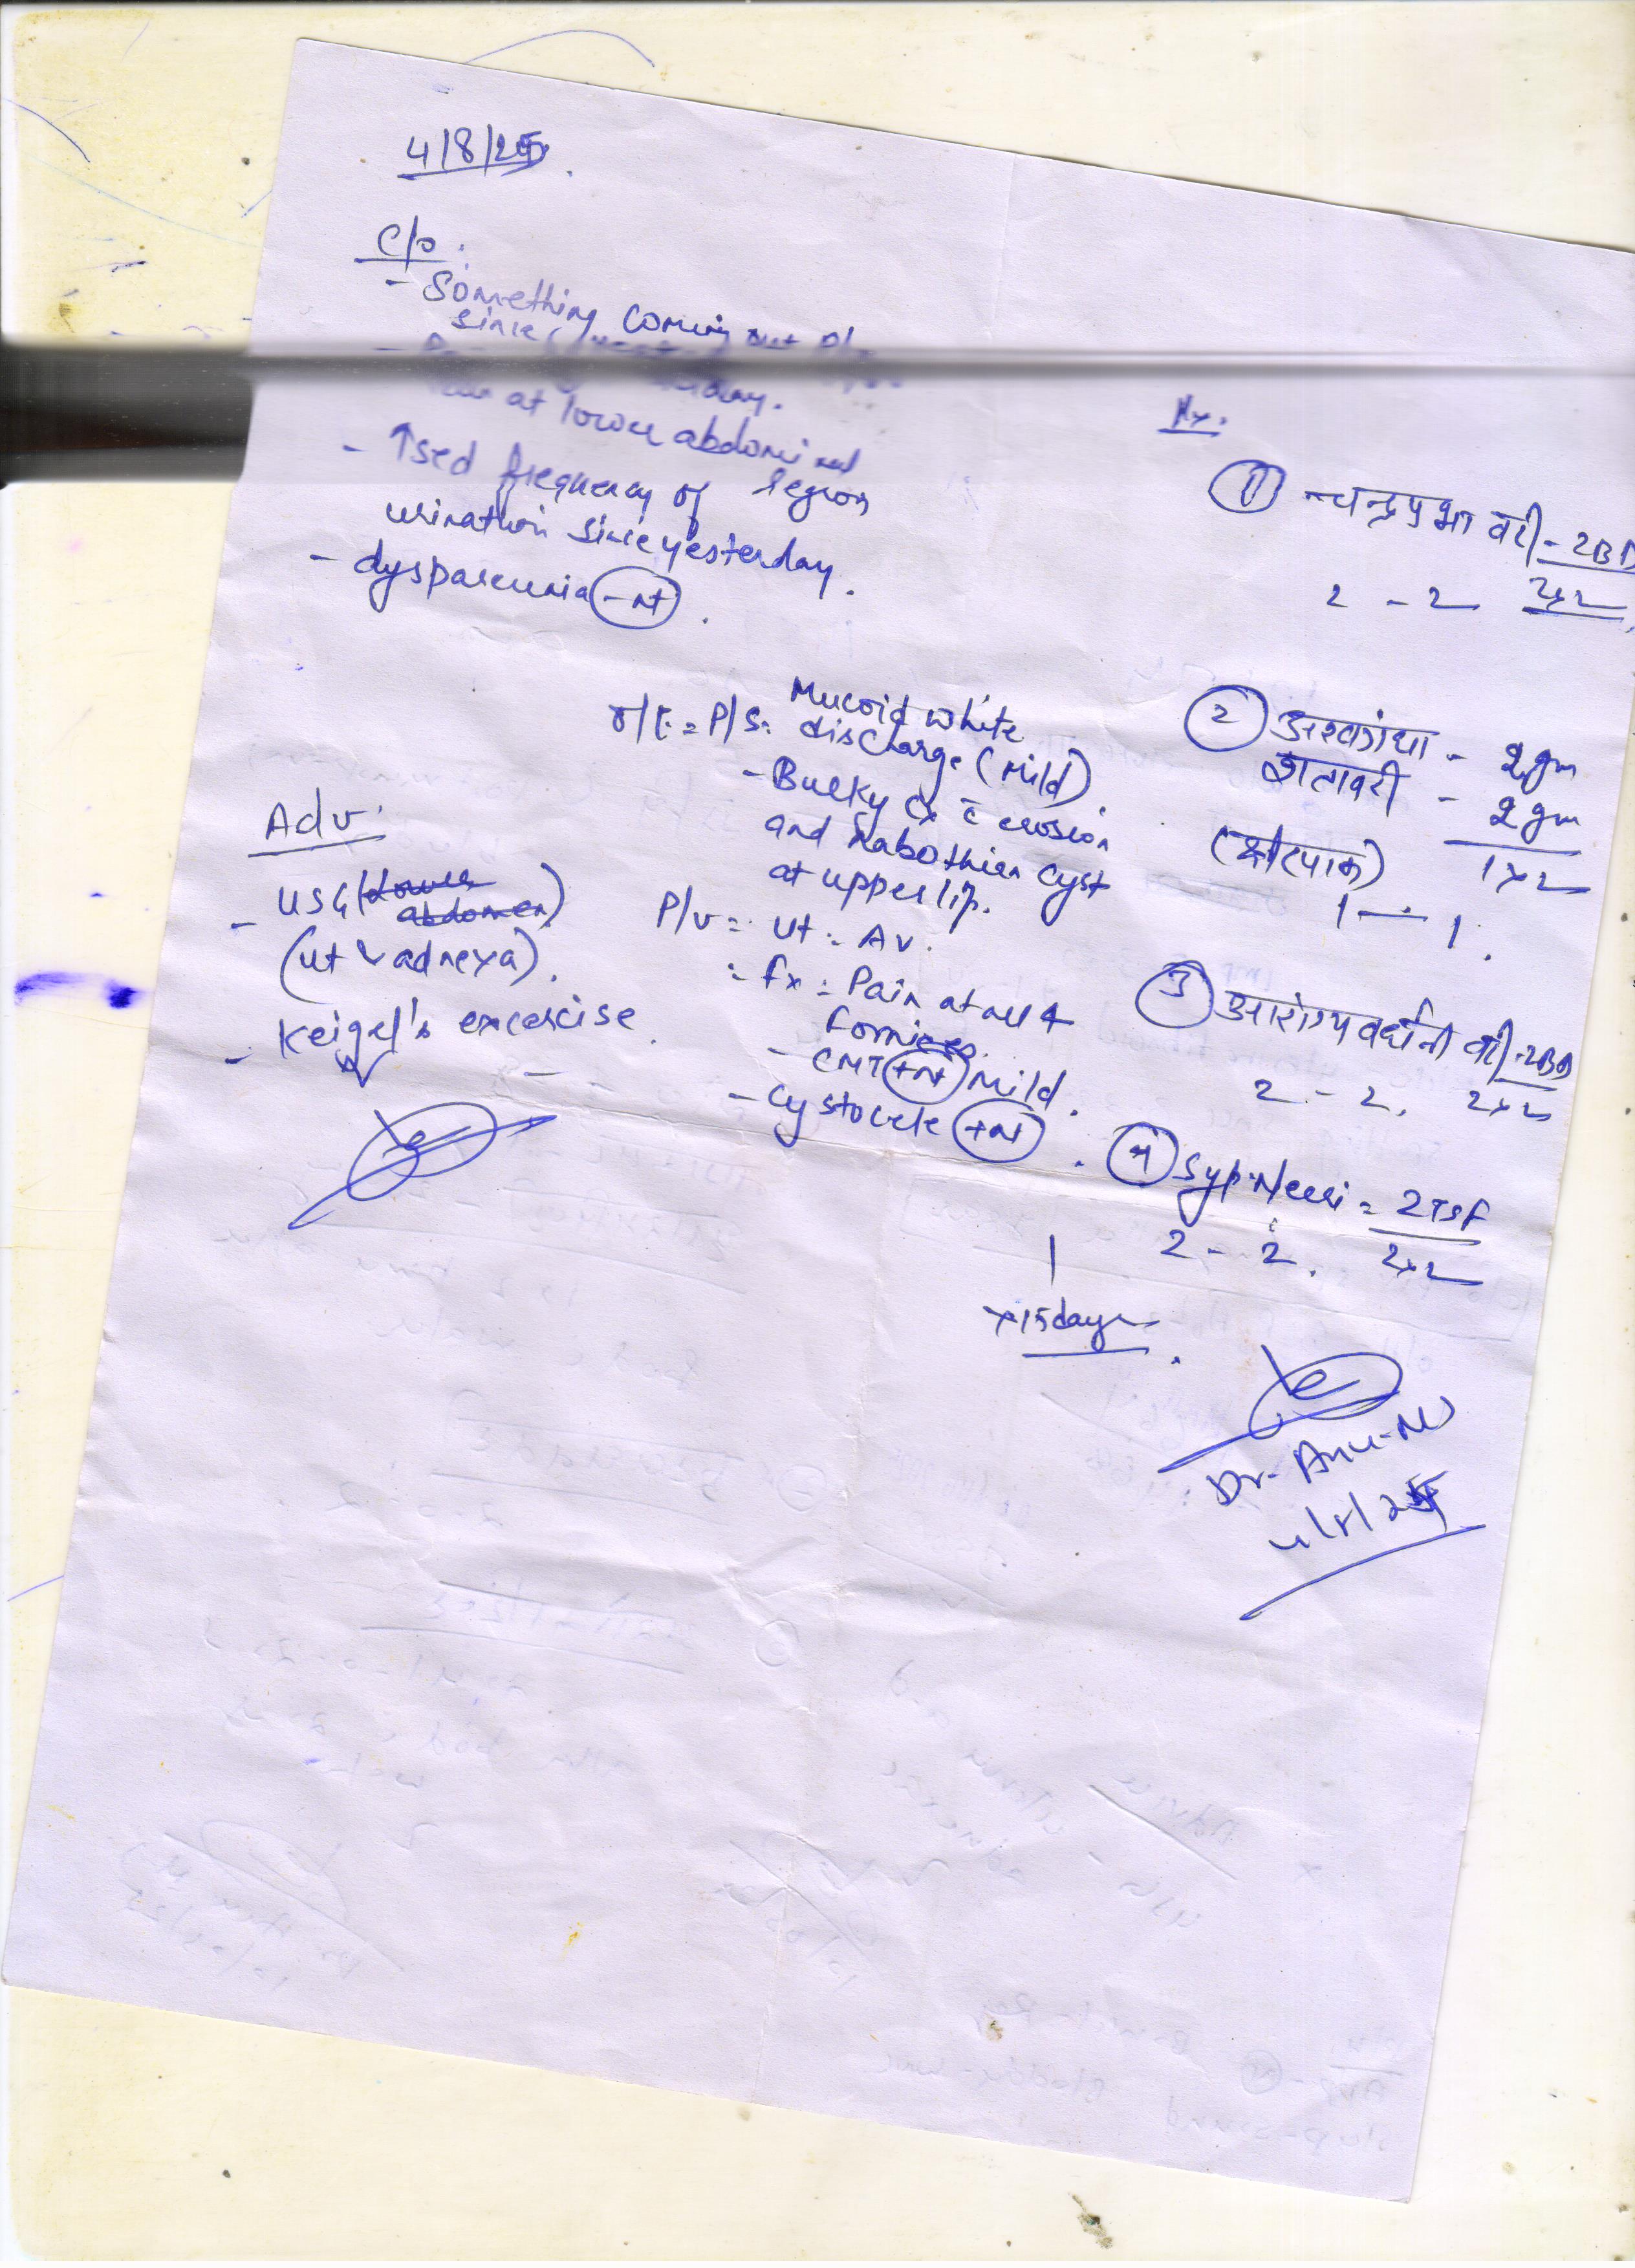 4/8/25.
C/o:
- Something coming out P/v
since
pain at lower abdominal
region
- ↑sed frequency of
urination since yesterday.
- dyspareunia -nt.
O/E:= P/S: Mucoid white
discharge (Mild).
- Bulky Cx c̄ erosion
and Nabothian cyst
at upper lip.
P/v = Ut: Av.
: Fx: Pain at all 4
fornices.
- CMT +nt Mild.
- Cystocele +nt.
Adv:
- USG (lower
abdomen)
(ut & adnexa).
- Keigel's excercise.
Rx.
① चन्द्रप्रभा वटी - 2BD
2 - 2 2x2
② अश्वगंधा - 2gm
शतावरी - 2gm
(क्षीरपाक) 1x2
1 — 1.
③ आरोग्यवर्धनी वटी - 2BD
2 - 2. 2x2
④ Syp. Neeri = 2TSF
2 - 2. 2x2
x15days.
Dr.
4/8/25